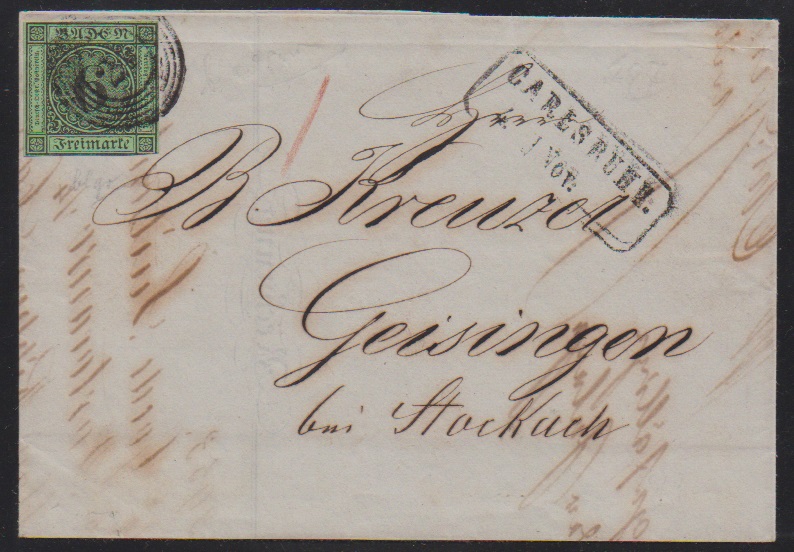 BADEN
6
Freimarke
CARLSRUHE.
1 Nov.
Herrn
B Kreuzer
Geisingen
bei Stockach
blgr